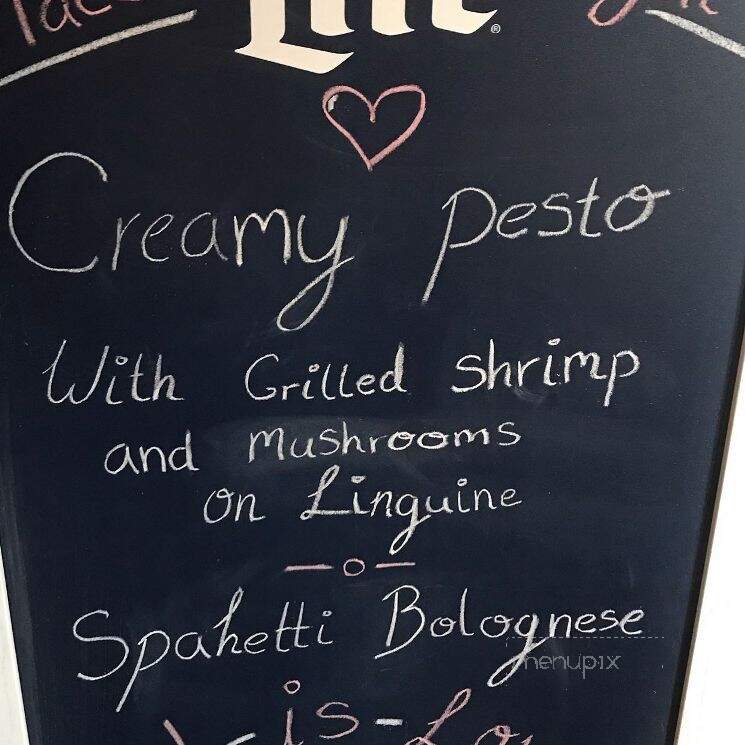 Lite®
Creamy pesto
With Grilled shrimp
and mushrooms
on Linguine
Spahetti Bolognese
menupix
is-